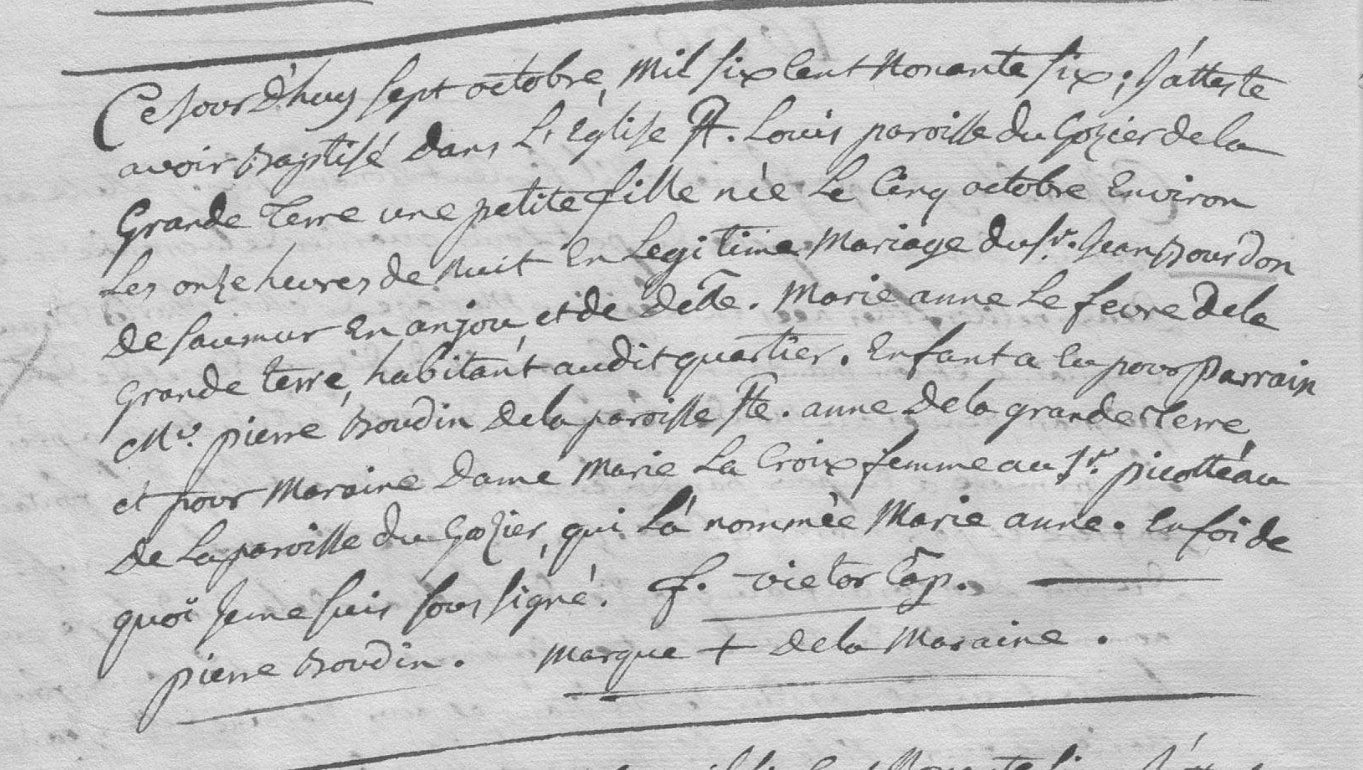 Cejourd'huy sept octobre, mil six Cent Nonante six; J'atteste
avoir Baptisé dans L'Église St. Louis paroisse du Gozier de la
Grande Terre une petite fille née Le Cinq octobre Environ
Les onze heures de Nuit En Legitime Mariage du Sr. Jean Bourdon
de Saumur En anjou et de dete. Marie anne Le fevre de la
Grande terre, habitant audit quartier. Enfant a Eu pour Parrain
Mr. pierre Boudin de la paroisse Ste. anne de la grande Terre
et pour Maraine Dame Marie La Croix femme au Sr. picotteau
de La paroisse du Gozier, qui L'á nommée Marie anne. En foï de
quoï Je me suis sous signé. f. victor Cap.
pierre Boudin. Marque + de la Maraine.